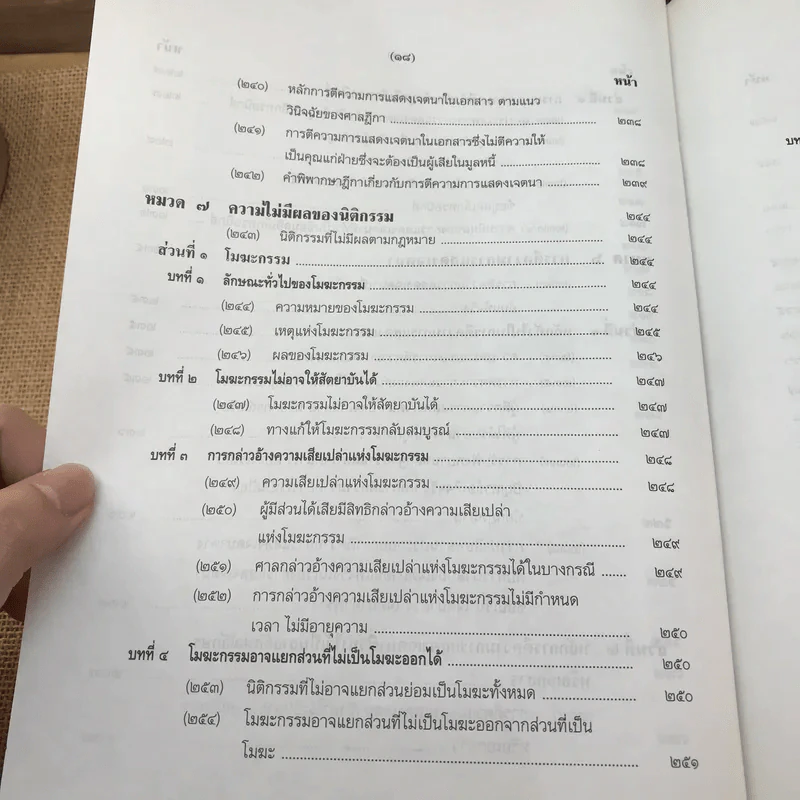 (๑๘)
หน้า
(๒๔๐) หลักการตีความการแสดงเจตนาในเอกสาร ตามแนว
วินิจฉัยของศาลฎีกา ........ ๒๓๘
(๒๔๑) การตีความการแสดงเจตนาในเอกสารซึ่งไม่ตีความให้
เป็นคุณแก่ฝ่ายซึ่งจะต้องเป็นผู้เสียในมูลหนี้ ........ ๒๓๘
(๒๔๒) คำพิพากษาฎีกาเกี่ยวกับการตีความการแสดงเจตนา ........ ๒๓๙
หมวด ๗ ความไม่มีผลของนิติกรรม ๒๔๔
(๒๔๓) นิติกรรมที่ไม่มีผลตามกฎหมาย ........ ๒๔๔
ส่วนที่ ๑ โมฆะกรรม ........ ๒๔๔
บทที่ ๑ ลักษณะทั่วไปของโมฆะกรรม ........ ๒๔๔
(๒๔๔) ความหมายของโมฆะกรรม ........ ๒๔๔
(๒๔๕) เหตุแห่งโมฆะกรรม ........ ๒๔๕
(๒๔๖) ผลของโมฆะกรรม ........ ๒๔๖
บทที่ ๒ โมฆะกรรมไม่อาจให้สัตยาบันได้ ........ ๒๔๗
(๒๔๗) โมฆะกรรมไม่อาจให้สัตยาบันได้ ........ ๒๔๗
(๒๔๘) ทางแก้ให้โมฆะกรรมกลับสมบูรณ์ ........ ๒๔๗
บทที่ ๓ การกล่าวอ้างความเสียเปล่าแห่งโมฆะกรรม ........ ๒๔๘
(๒๔๙) ความเสียเปล่าแห่งโมฆะกรรม ........ ๒๔๘
(๒๕๐) ผู้มีส่วนได้เสียมีสิทธิกล่าวอ้างความเสียเปล่า
แห่งโมฆะกรรม ........ ๒๔๙
(๒๕๑) ศาลกล่าวอ้างความเสียเปล่าแห่งโมฆะกรรมได้ในบางกรณี ........ ๒๔๙
(๒๕๒) การกล่าวอ้างความเสียเปล่าแห่งโมฆะกรรมไม่มีกำหนด
เวลา ไม่มีอายุความ ........ ๒๕๐
บทที่ ๔ โมฆะกรรมอาจแยกส่วนที่ไม่เป็นโมฆะออกได้ ........ ๒๕๐
(๒๕๓) นิติกรรมที่ไม่อาจแยกส่วนย่อมเป็นโมฆะทั้งหมด ........ ๒๕๐
(๒๕๔) โมฆะกรรมอาจแยกส่วนที่ไม่เป็นโมฆะออกจากส่วนที่เป็น
โมฆะ ........ ๒๕๑